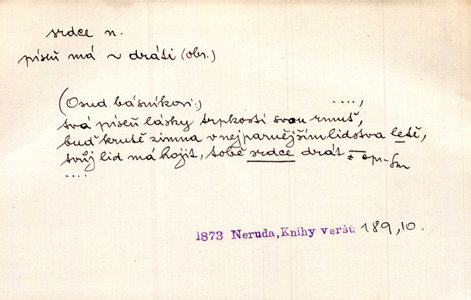 srdce n.
píseň má ~ dráti (obr.)
(Osud básníkovi.) ....,
tvá píseň lásky trpkostí svou rmuť,
buď krutě zimna v nejparnějším lidstva letě,
tvůj lid má hojit, tobě srdce drát
....
1873 Neruda, Knihy veršů 189,10.